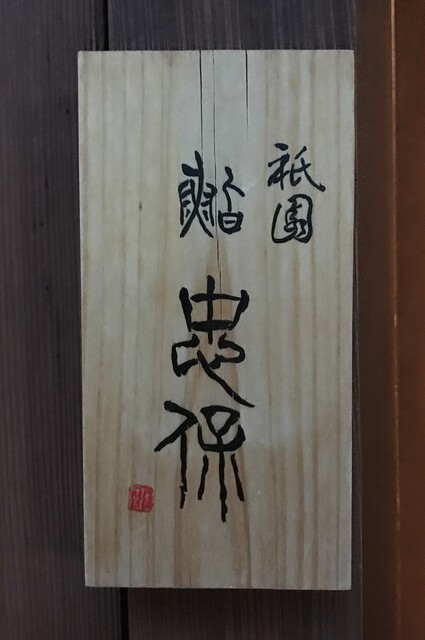 祇園
鮨忠保